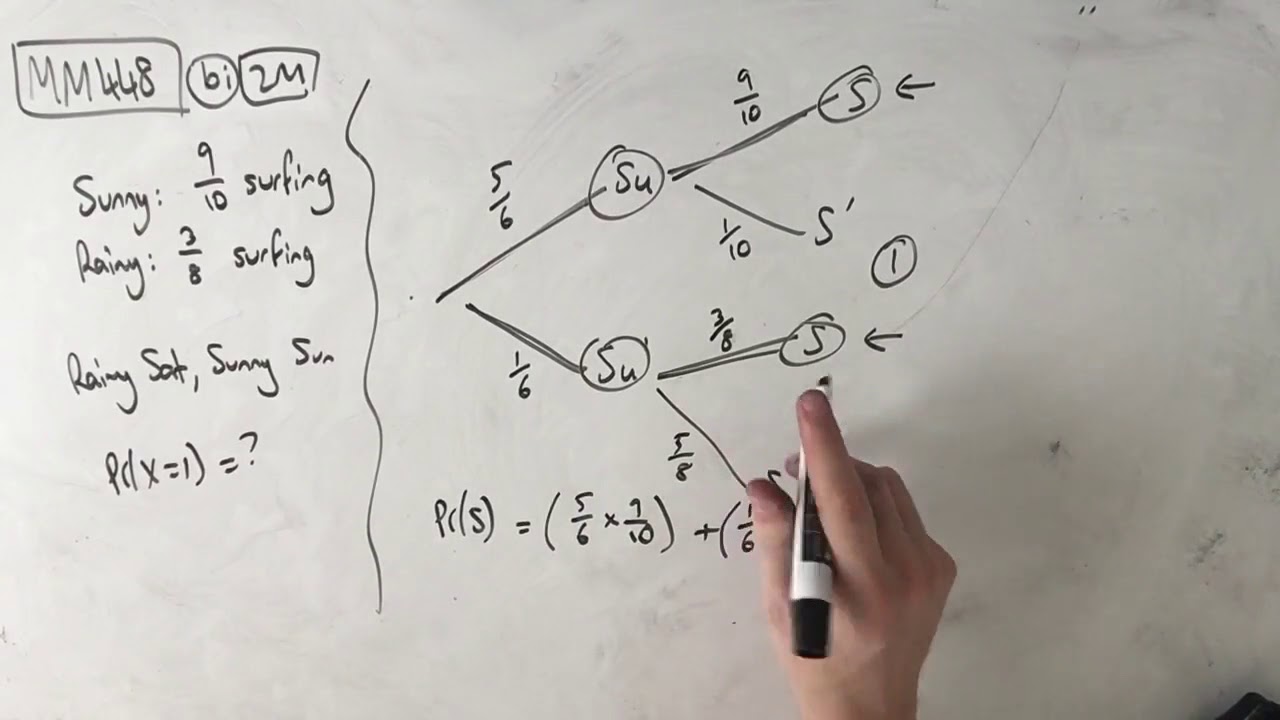 MM448 bi 2M
Sunny: 9/10 surfing
Rainy: 3/8 surfing
Rainy Sat, Sunny Sun
Pr(X=1) = ?
9/10 S ←
5/6 Su
1/10 S'
1
3/8 S ←
1/6 Su
5/8
Pr(S) = (5/6 × 9/10) + (1/6